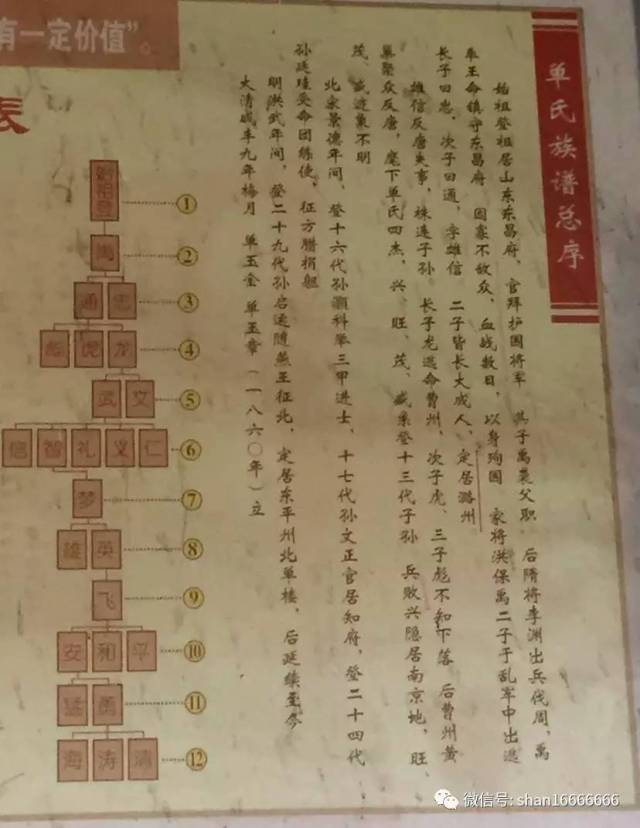 有一定价值”。
表
单氏族谱总序
始祖登祖居山东东昌府，官拜护国将军 其子禹袭父职 后隋将李渊出兵伐周，禹
奉王命镇守东昌府 因寡不敌众，血战数日，以身殉国 家将洪保禹二子于乱军中出逃
长子曰忠，次子曰通，字雄信 二子皆长大成人，定居潞州
雄信反唐失事，株连子孙 长子龙逃命曹州，次子虎、三子彪不知下落 后曹州黄
巢聚众反唐，麾下单氏四杰，兴、旺、茂、盛系登十三代子孙 兵败兴隐居南京地，旺、
茂、盛逃巢不明
北宋景德年间，登十六代孙灏科举三甲进士，十七代孙文正官居知府，登二十四代
孙廷珪受命团练使，征方腊捐躯
明洪武年间，登二十九代孙启运随燕王征北，定居东平州北单楼，后延续至今
大清咸丰九年梅月 单玉金 单玉章（一八六〇年）立
始祖登 ①
禹 ②
通 忠 ③
彪 虎 龙 ④
武 文 ⑤
信 智 礼 义 仁 ⑥
梦 ⑦
雄 英 ⑧
飞 ⑨
安 和 平 ⑩
猛 勇 ⑪
海 涛 清 ⑫
微信号: shan16666666